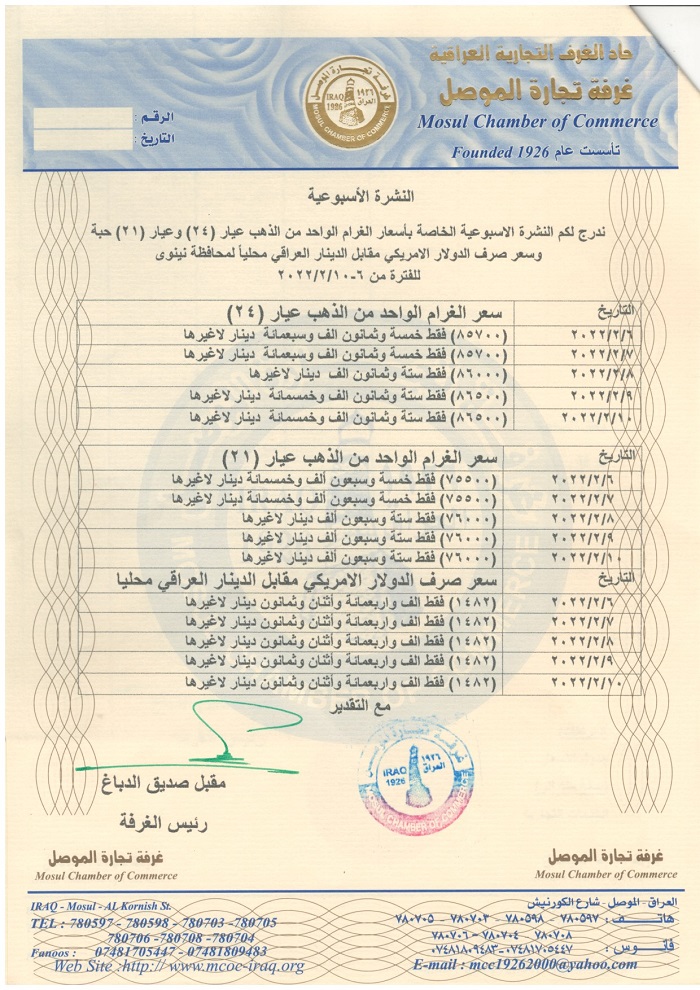 حاد الغرف التجارية العراقية
غرفة تجارة الموصل
Mosul Chamber of Commerce
تأسست عام Founded 1926
غرفة تجارة الموصل
IRAQ 1926 ١٩٢٦ العراق
MOSUL CHAMBER OF COMMERCE
الرقم :
التاريخ :
النشرة الأسبوعية
ندرج لكم النشرة الاسبوعية الخاصة بأسعار الغرام الواحد من الذهب عيار (٢٤) وعيار (٢١) حبة
وسعر صرف الدولار الامريكي مقابل الدينار العراقي محلياً لمحافظة نينوى
للفترة من ٦-٢٠٢٢/٢/١٠
التاريخ سعر الغرام الواحد من الذهب عيار (٢٤)
٢٠٢٢/٢/٦ (٨٥٧٠٠) فقط خمسة وثمانون الف وسبعمائة دينار لاغيرها
٢٠٢٢/٢/٧ (٨٥٧٠٠) فقط خمسة وثمانون الف وسبعمائة دينار لاغيرها
٢٠٢٢/٢/٨ (٨٦٠٠٠) فقط ستة وثمانون الف دينار لاغيرها
٢٠٢٢/٢/٩ (٨٦٥٠٠) فقط ستة وثمانون الف وخمسمائة دينار لاغيرها
٢٠٢٢/٢/١٠ (٨٦٥٠٠) فقط ستة وثمانون الف وخمسمائة دينار لاغيرها
التاريخ سعر الغرام الواحد من الذهب عيار (٢١)
٢٠٢٢/٢/٦ (٧٥٥٠٠) فقط خمسة وسبعون ألف وخمسمائة دينار لاغيرها
٢٠٢٢/٢/٧ (٧٥٥٠٠) فقط خمسة وسبعون ألف وخمسمائة دينار لاغيرها
٢٠٢٢/٢/٨ (٧٦٠٠٠) فقط ستة وسبعون ألف دينار لاغيرها
٢٠٢٢/٢/٩ (٧٦٠٠٠) فقط ستة وسبعون ألف دينار لاغيرها
٢٠٢٢/٢/١٠ (٧٦٠٠٠) فقط ستة وسبعون ألف دينار لاغيرها
التاريخ سعر صرف الدولار الامريكي مقابل الدينار العراقي محليا
٢٠٢٢/٢/٦ (١٤٨٢) فقط الف واربعمائة وأثنان وثمانون دينار لاغيرها
٢٠٢٢/٢/٧ (١٤٨٢) فقط الف واربعمائة وأثنان وثمانون دينار لاغيرها
٢٠٢٢/٢/٨ (١٤٨٢) فقط الف واربعمائة وأثنان وثمانون دينار لاغيرها
٢٠٢٢/٢/٩ (١٤٨٢) فقط الف واربعمائة وأثنان وثمانون دينار لاغيرها
٢٠٢٢/٢/١٠ (١٤٨٢) فقط الف واربعمائة وأثنان وثمانون دينار لاغيرها
مع التقدير
غرفة تجارة الموصل
IRAQ 1926 ١٩٢٦ العراق
MOSUL CHAMBER OF COMMERCE
مقبل صديق الدباغ
رئيس الغرفة
غرفة تجارة الموصل
Mosul Chamber of Commerce
غرفة تجارة الموصل
Mosul Chamber of Commerce
العراق - الموصل - شارع الكورنيش
هاتف : ٧٨٠٥٩٧ - ٧٨٠٥٩٨ - ٧٨٠٧٠٣ - ٧٨٠٧٠٥
٧٨٠٧٠٨ - ٧٨٠٧٠٤ - ٧٨٠٧٠٦
فانوس : ٠٧٤٨١٧٠٥٤٤٧-٠٧٤٨١٨٠٩٤٨٣
E-mail : mcc19262000@yahoo.com
IRAQ - Mosul - AL Kornish St.
TEL : 780597 - 780598 - 780703 -780705
780706 -780708 -780704
Fanoos : 07481705447 - 07481809483
Web Site :http:// www.mcoc-iraq.org